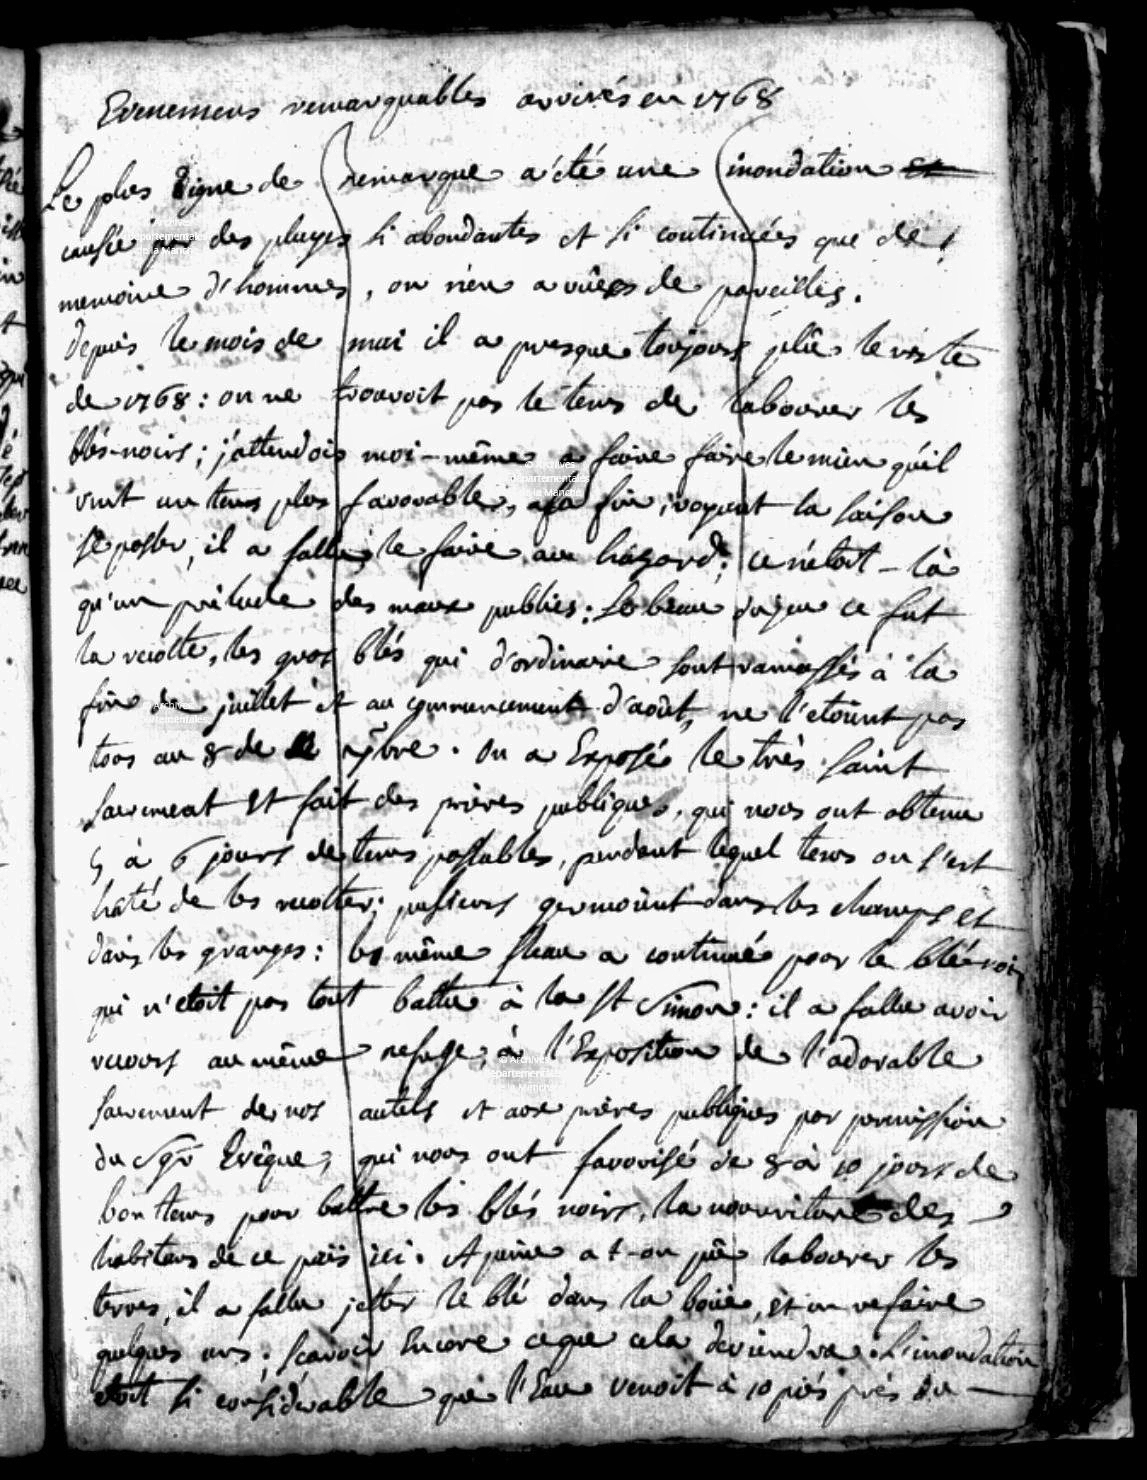 Evenemens remarquables arrivés en 1768
Le plus digne de remarque a été une inondation et
causée par des pluyes si abondantes et si continuées que de
memoire d'hommes, on n'en a vûes de pareilles.
Depuis le mois de mai il a presque toujours plû le reste
de 1768: on ne trouvoit pas le tems de labourer les
blés-noirs; j'attendois moi-même a faire faire le mien qu'il
vint un tems plus favorable, a la fin, voyant la saison
se passer, il a fallu le faire au hazard; ce n'étoit-là
qu'un prélude des maux publics: le beau du jeu ce fut
la recolte, les gros blés qui d'ordinaire sont ramassés à la
fin de juillet et au commencement d'août, ne l'etoient pas
tous au 8 de 7bre. On a Exposé le très saint
sacrement et fait des prières publiques, qui nous ont obtenu
5 à 6 jours de tems passables, pendant lequel tems on s'est
haté de les recolter; plusieurs germoient dans les champs et
dans les granges: le même fleau a continué pour le blé noir
qui n'etoit pas tout battu à la St Simon: il a fallu avoir
recours au même refuge, à l'Exposition de l'adorable
sacrement de nos autels et aux prières publiques par permission
du Sgr Evêque, qui nous ont favorisé de 8 à 10 jours de
bon tems pour battre les blés noirs, la nourriture des
habitans de ce païs ici. A peine a t-on pû labourer les
terres, il a fallu jetter le blé dans la boüe, et en refaire
quelques uns. Scavoir Encore ce que cela deviendra. L'inondation
etoit si considerable que l'Eau venoit à 10 piés près du